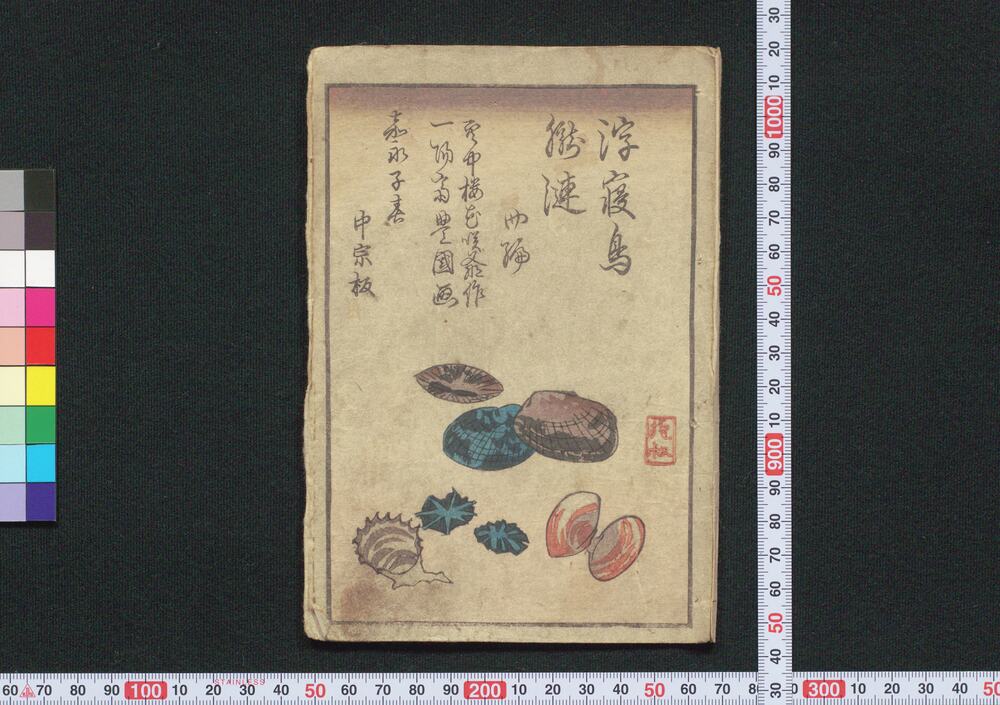 浮寝鳥
朧漣
四編
雲中楼花咲爺作
一陽斎豊國画
嘉永子春
中宗板
30
20
10
1000
90
80
70
60
50
40
30
20
10
900
90
80
70
60
50
40
30
STAINLESS
60 70 80 90 100 10 20 30 40 50 60 70 80 90 200 10 20 30 40 50 60 70 8 0 300 10 20 30 40 50